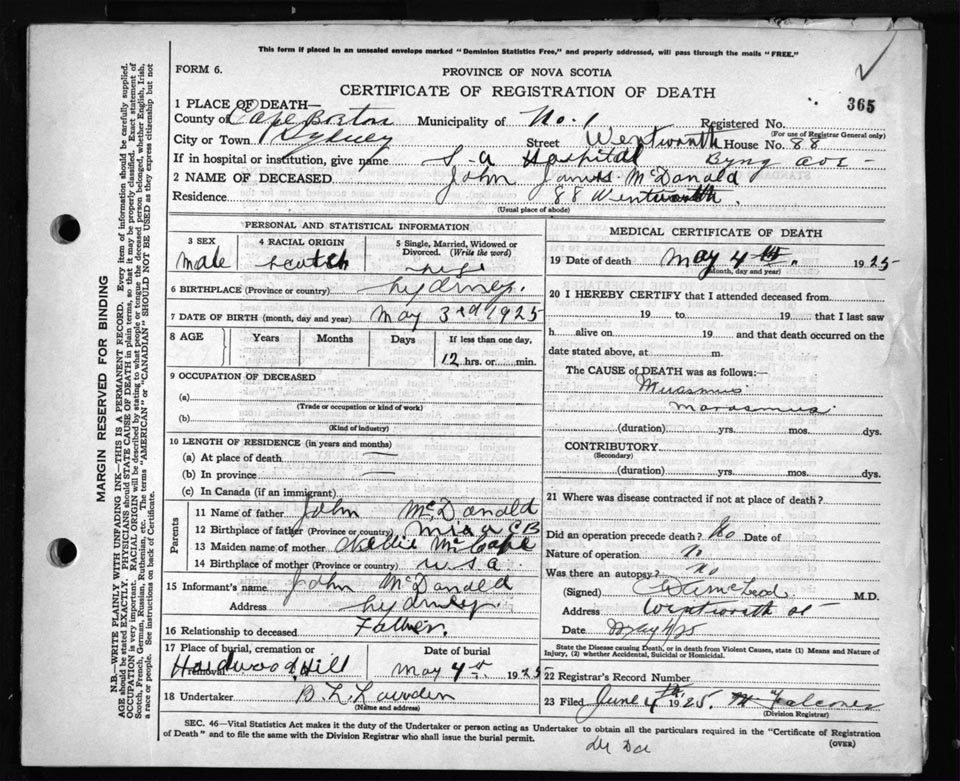 This form if placed in an unsealed envelope marked "Dominion Statistics Free," and properly addressed, will pass through the mails "FREE."
FORM 6.
PROVINCE OF NOVA SCOTIA
CERTIFICATE OF REGISTRATION OF DEATH
365
1 PLACE OF DEATH—
County of Cape Breton Municipality of No. 1 Registered No.
(For use of Registrar General only)
City or Town Sydney Street Wentworth House No. 88
If in hospital or institution, give name Hospital Byng Ave
2 NAME OF DECEASED. John James McDonald
Residence 88 Wentworth.
(Usual place of abode)
PERSONAL AND STATISTICAL INFORMATION
3 SEX 4 RACIAL ORIGIN 5 Single, Married, Widowed or Divorced. (Write the word)
Male Scotch
6 BIRTHPLACE (Province or country) Sydney.
7 DATE OF BIRTH (month, day and year) May 3rd 1925
8 AGE Years Months Days If less than one day,
12 hrs. or min.
9 OCCUPATION OF DECEASED
(a)
(Trade or occupation or kind of work)
(b)
(Kind of industry)
10 LENGTH OF RESIDENCE (in years and months)
(a) At place of death
(b) In province
(c) In Canada (if an immigrant)
Parents
11 Name of father John McDonald
12 Birthplace of father (Province or country) Mira CB
13 Maiden name of mother
14 Birthplace of mother (Province or country) USA
15 Informant's name John McDonald
Address Sydney.
16 Relationship to deceased Father.
17 Place of burial, cremation or removal Date of burial
Hardwood Hill May 4th 1925
18 Undertaker B. L. Lowden
(Name and address)
MEDICAL CERTIFICATE OF DEATH
19 Date of death May 4th. 1925
(Month, day and year)
20 I HEREBY CERTIFY that I attended deceased from
19 to 19 that I last saw
h alive on 19 and that death occurred on the
date stated above, at m.
The CAUSE of DEATH was as follows:—
Marasmus
(duration) yrs. mos. dys.
CONTRIBUTORY
(Secondary)
(duration) yrs. mos. dys.
21 Where was disease contracted if not at place of death?
Did an operation precede death? No Date of
Nature of operation no
Was there an autopsy? No
(Signed) McLeod M.D.
Address Wentworth St
Date May 4/25
State the Disease causing Death, or in death from Violent Causes, state (1) Means and Nature of Injury, (2) whether Accidental, Suicidal or Homicidal.
22 Registrar's Record Number
23 Filed June 4th 1925. Falconer
(Division Registrar)
SEC. 46—Vital Statistics Act makes it the duty of the Undertaker or person acting as Undertaker to obtain all the particulars required in the "Certificate of Registration
of Death" and to file the same with the Division Registrar who shall issue the burial permit.
(OVER)
MARGIN RESERVED FOR BINDING
N.B.—WRITE PLAINLY WITH UNFADING INK—THIS IS A PERMANENT RECORD. Every item of information should be carefully supplied.
AGE should be stated EXACTLY. PHYSICIANS should STATE CAUSE OF DEATH in plain terms, so that it may be properly classified. Exact statement of
OCCUPATION is very important. RACIAL ORIGIN will be described by stating to what people or tongue the deceased person belonged, whether English, Irish,
Scotch, French, German, Russian, Ruthenian, etc. The terms "AMERICAN" or "CANADIAN" SHOULD NOT BE USED as they express citizenship but not
a race or people. See instructions on back of Certificate.